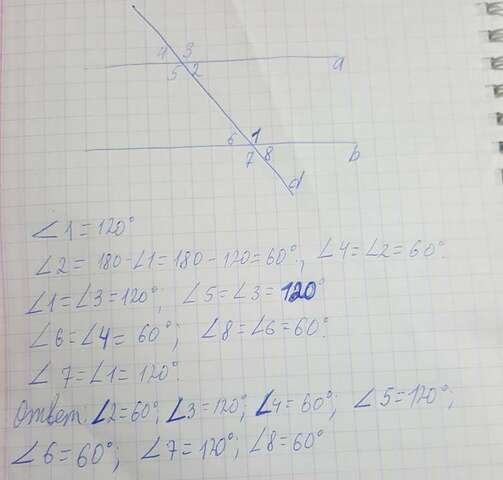 4 3
5 2
a
6 1
7 8
b
d
∠1=120°
∠2=180-∠1=180-120=60°, ∠4=∠2=60°.
∠1=∠3=120°; ∠5=∠3=120°
∠6=∠4=60°; ∠8=∠6=60°.
∠7=∠1=120°.
Ответ. ∠2=60°; ∠3=120°; ∠4=60°; ∠5=120°;
∠6=60°; ∠7=120°; ∠8=60°